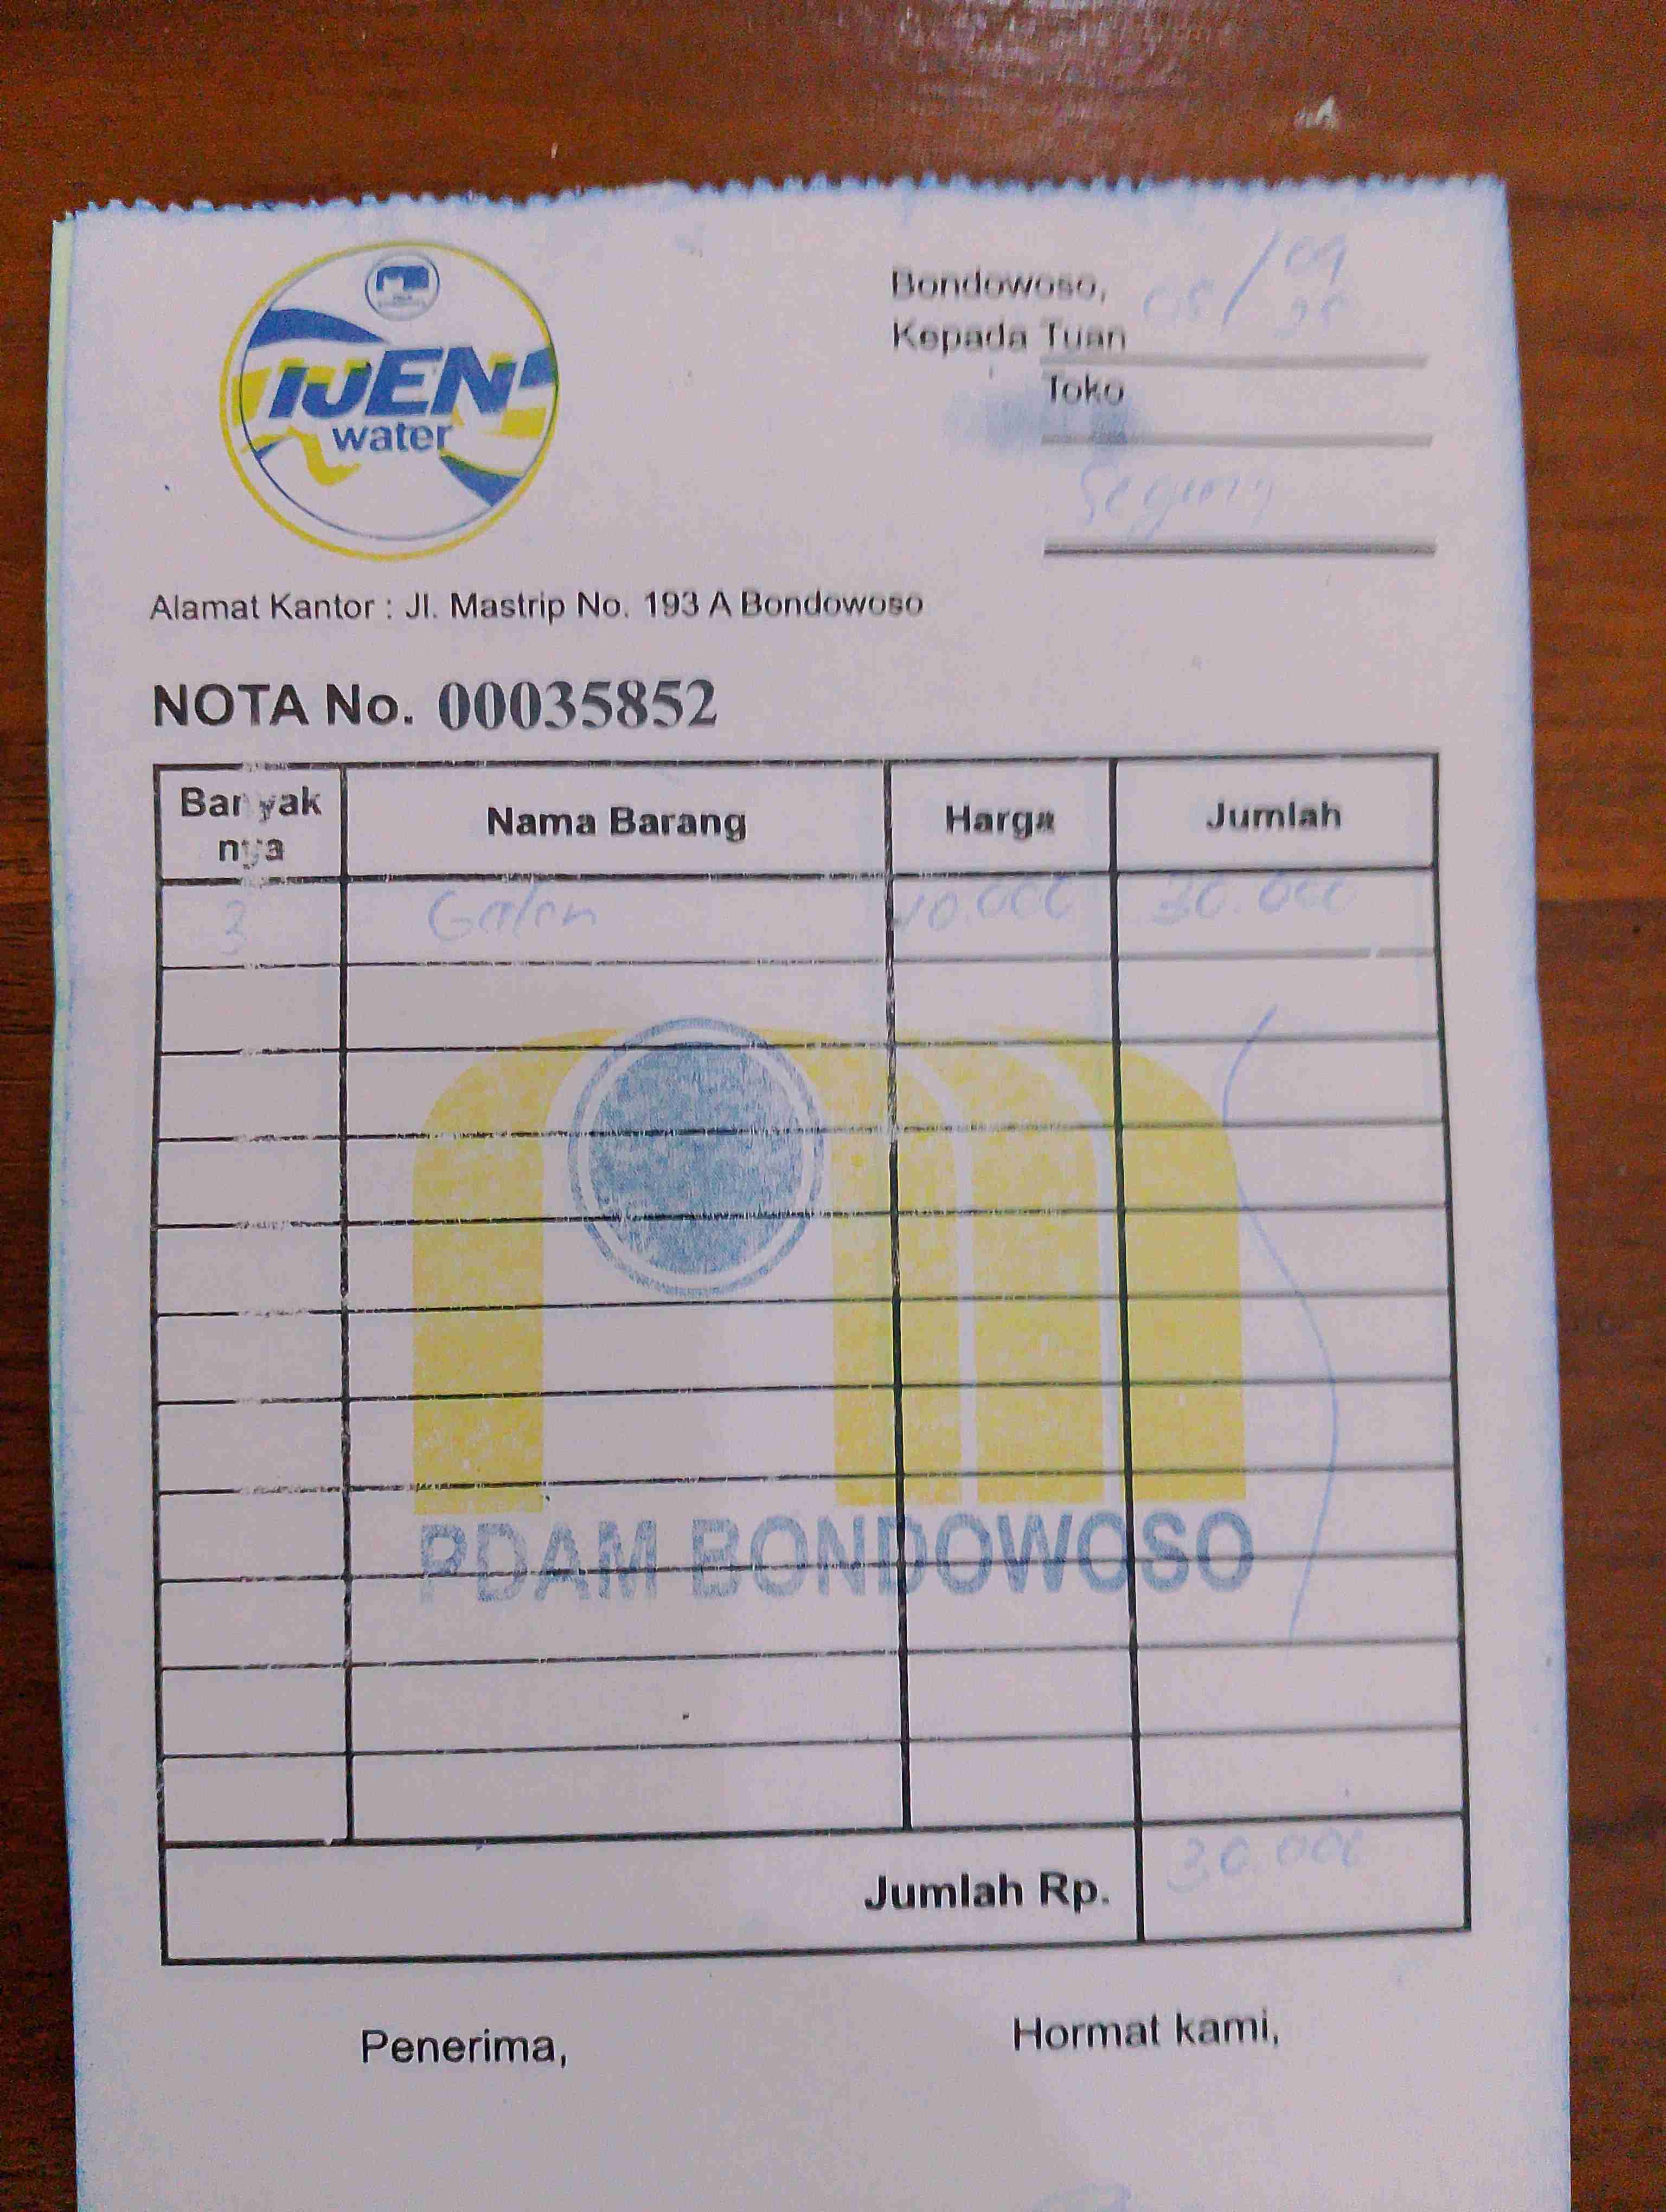 IJEN
water
Bondowoso, 08/09
Kepada Tuan
Toko
Alamat Kantor : Jl. Mastrip No. 193 A Bondowoso
NOTA No. 00035852
Banyak nya Nama Barang Harga Jumlah
3 Galon 10.000 30.000
PDAM BONDOWOSO
Jumlah Rp. 30.000
Penerima, Hormat kami,